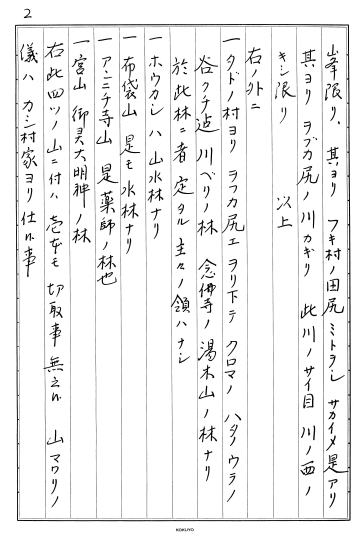 2
峯限リ、其ヨリ フキ村ノ田尻ミトヲシ サカイメ是アリ
其ヨリ ヲブカ尻ノ川カギリ 此川ノサイ目 川ノ西ノ
キシ限リ 以上
右ノ外ニ
一タドノ村ヨリ ヲフカ尻エ ヲリ下テ クロマノ ハタノウラノ
谷クチ迠 川ベリノ林 念佛寺ノ湯木山ノ林ナリ
於此林ニ者 定タル主々ノ領ハナシ
一ホウカシハ山水林ナリ
一布袋山 是モ水林ナリ
一アンニチ寺山 是薬師ノ林也
一宮山 御具大明神ノ林
右此四ツノ山ニ付ハ 壱本モ 切取事 無之ハ 山マワリノ
儀ハ カシ村家ヨリ 仕ハ事
KOKUYO